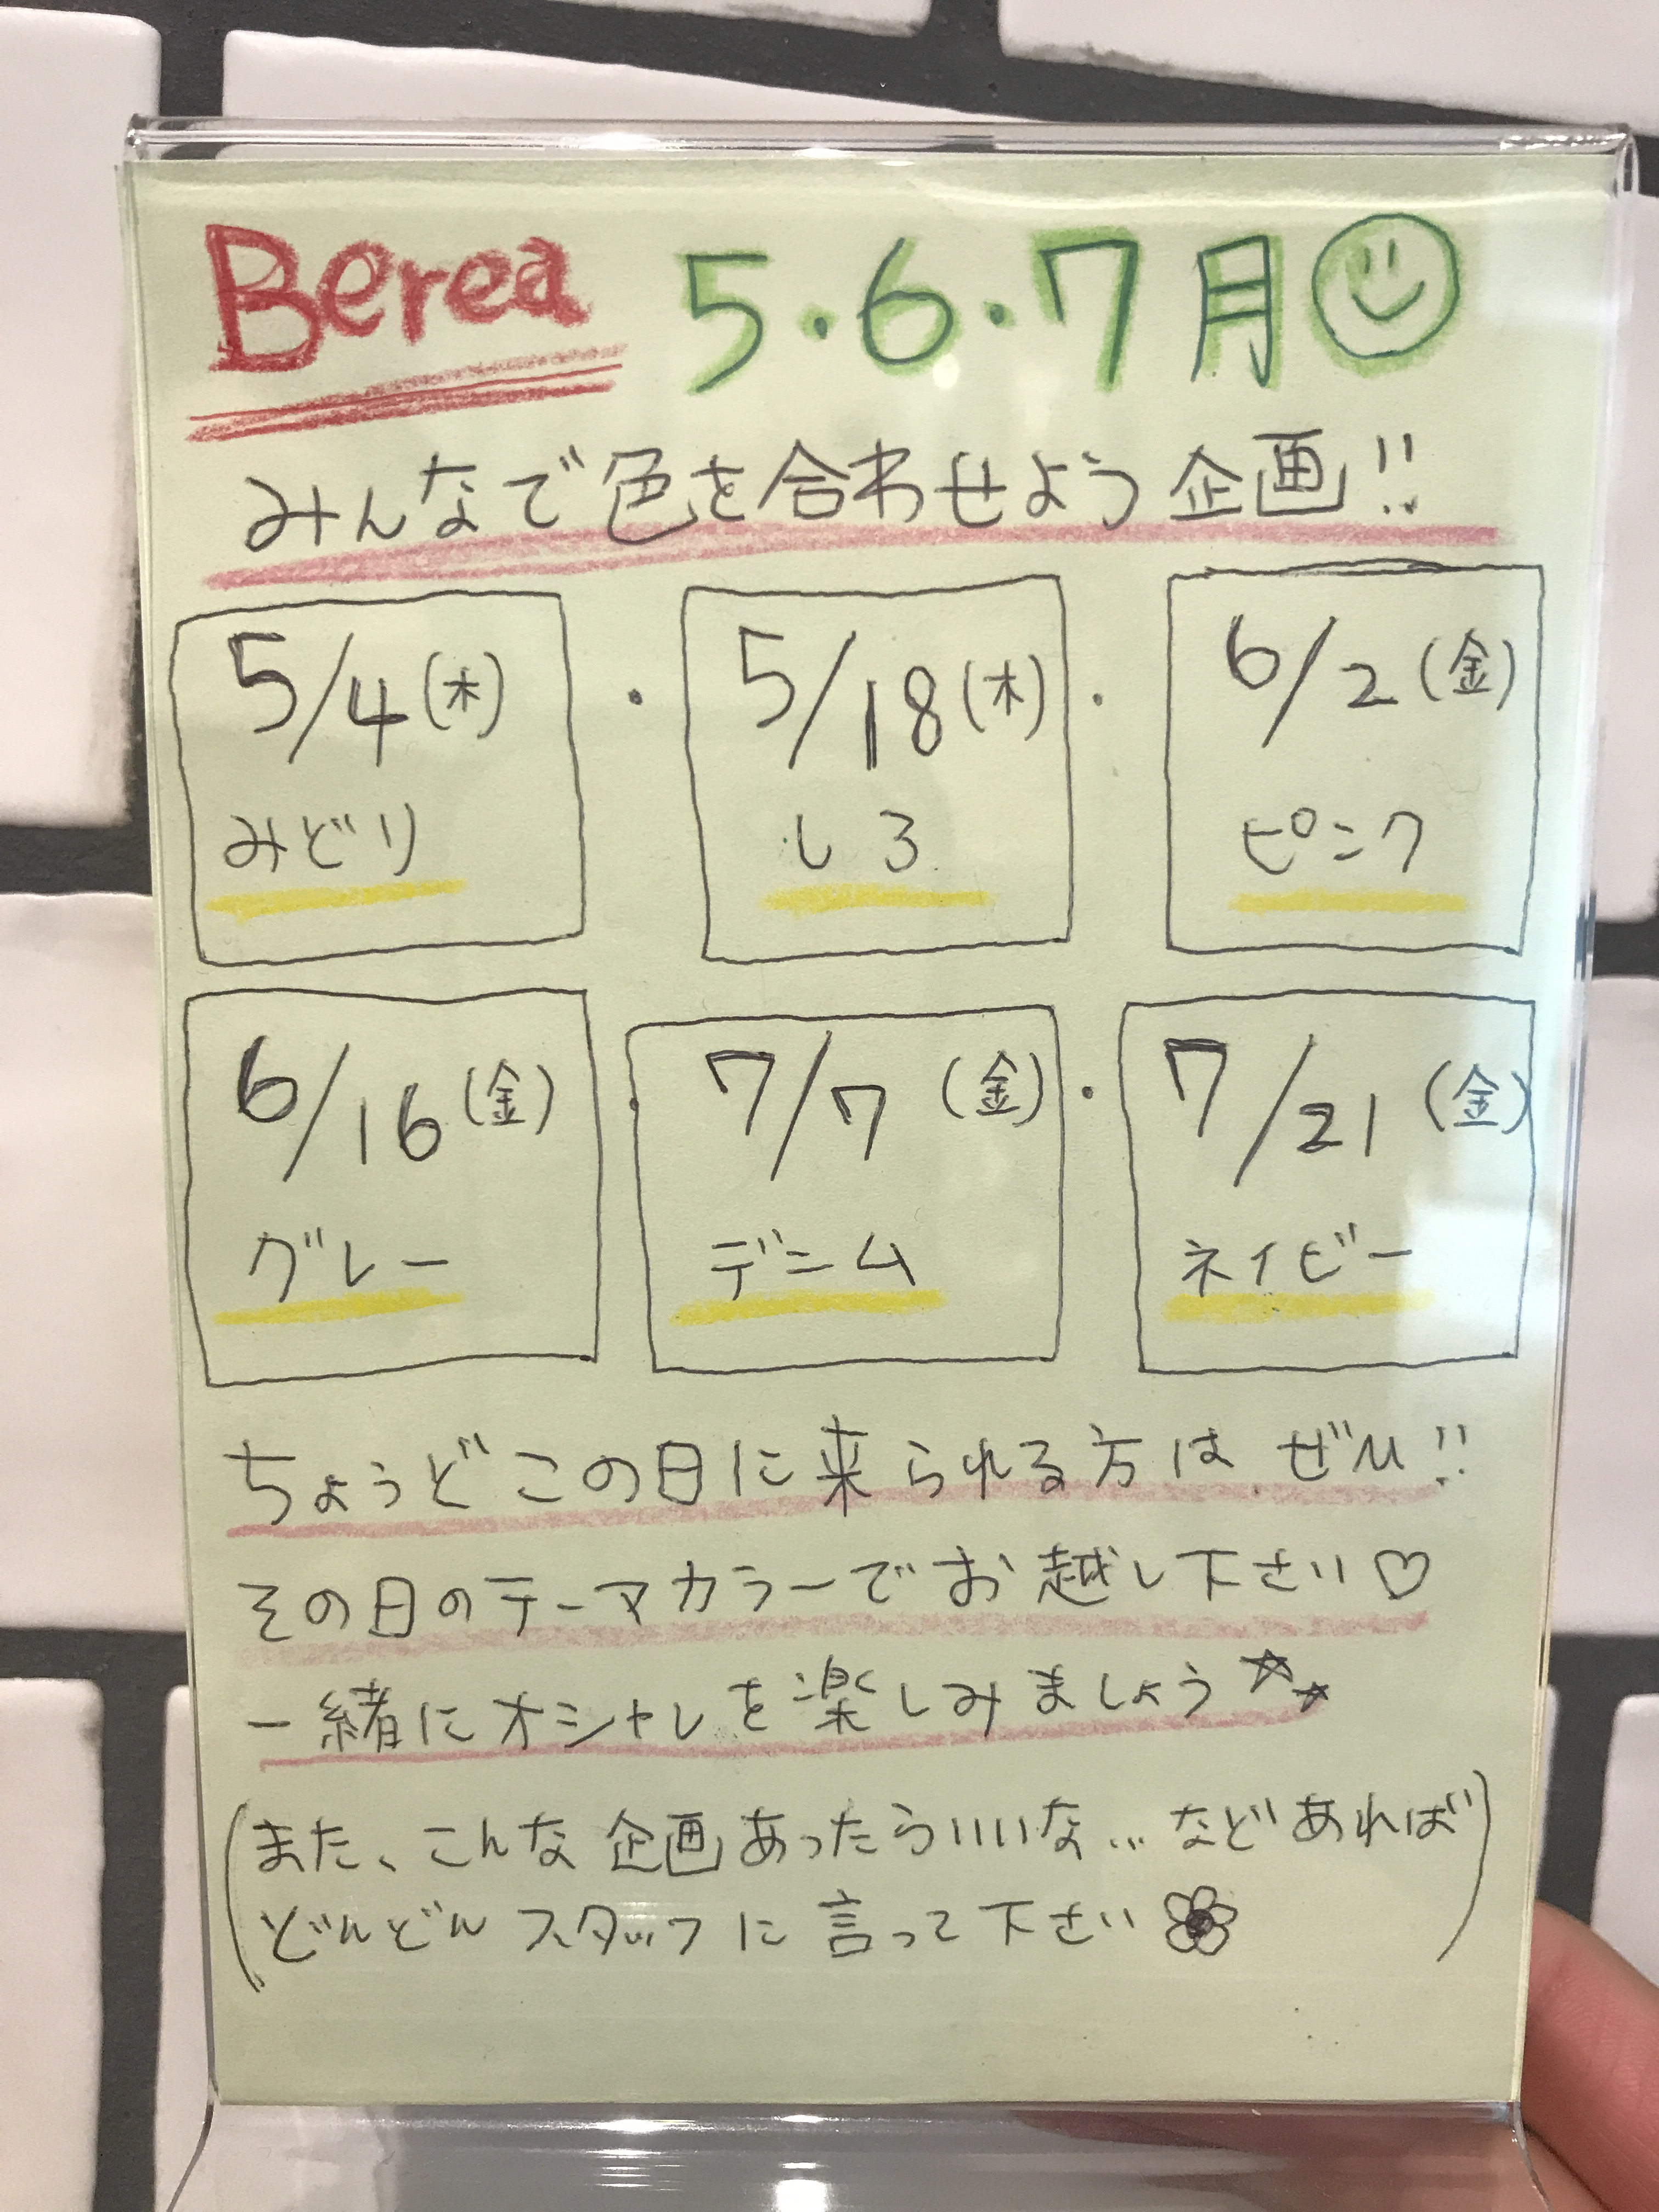 Berea 5・6・7月
みんなで色を合わせよう企画!!
5/4(木)・5/18(木)・6/2(金)
みどり しろ ピンク
6/16(金)・7/7(金)・7/21(金)
グレー デニム ネイビー
ちょうどこの日に来られる方はぜひ!!
その日のテーマカラーでお越し下さい♡
一緒にオシャレを楽しみましょう☆☆
(また、こんな企画あったらいいな…などあれば
どんどんスタッフに言って下さい)